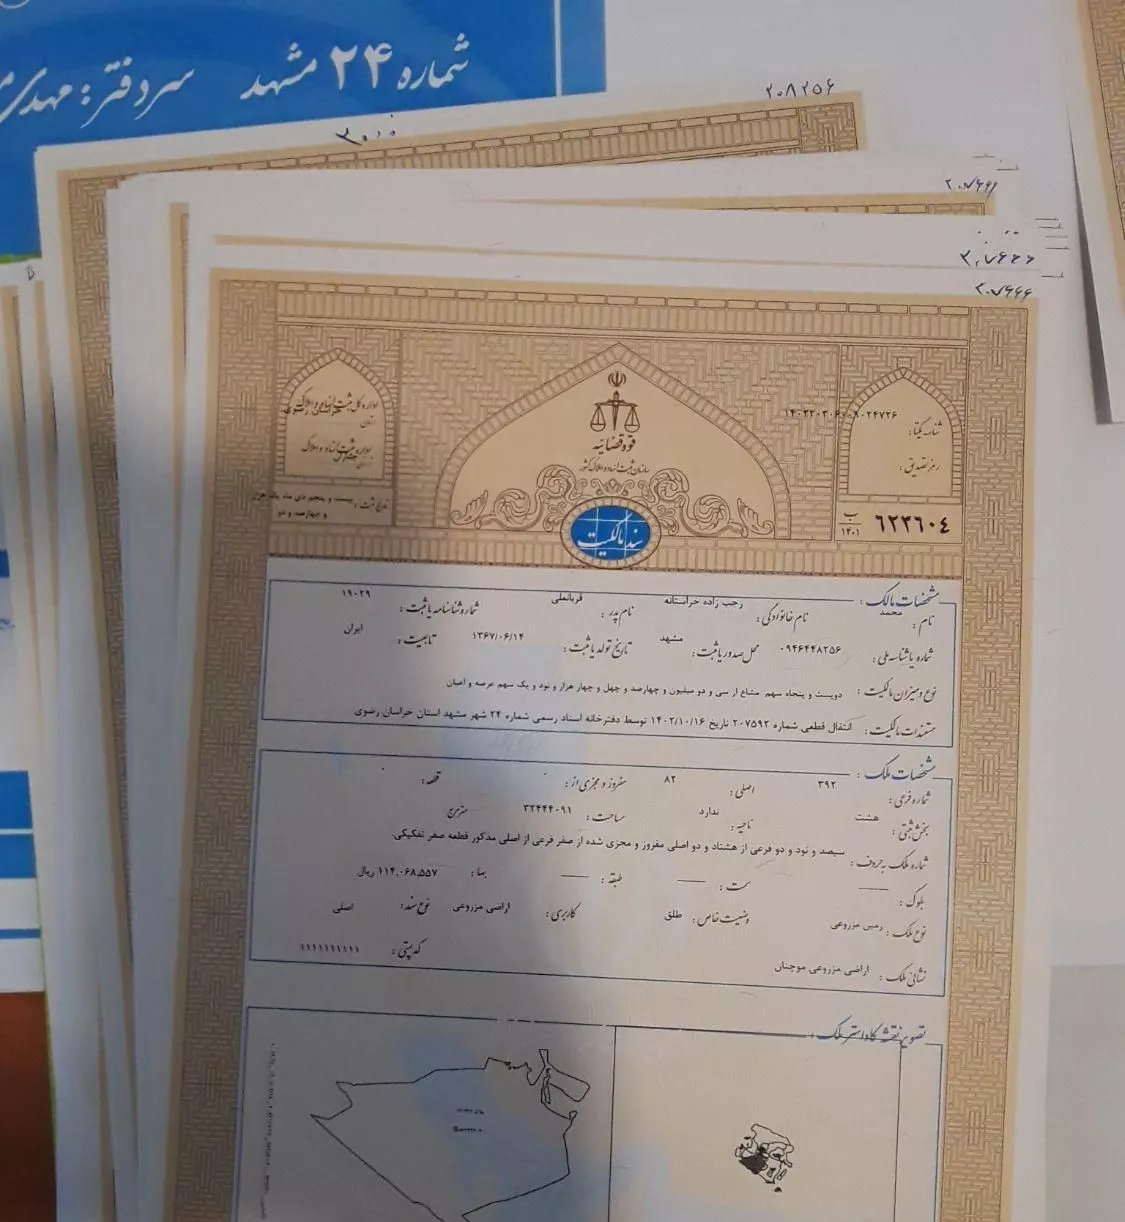 شماره ۲۴ مشهد سردفتر: مهدی
۲۰۸۲۵۶
۲۰۷۶۶۶
قوه قضائیه
سازمان ثبت اسناد و املاک کشور
سند مالکیت
اداره کل ثبت اسناد و املاک
خراسان رضوی
استان
تاریخ ثبت: بیست و پنجم دی ماه یک هزار و چهارصد و دو
شناسه یکتا:
رمز تصدیق:
۶۲۳۶۰۴ ب ۱۴۰۱
مشخصات مالک:
نام: محمد نام خانوادگی: رجب زاده خراستانه نام پدر: قربانعلی شماره شناسنامه یا ثبت: ۱۹۰۲۹
شماره یا شناسه ملی: ۰۹۴۶۴۴۸۲۵۶ محل صدور یا ثبت: مشهد تاریخ تولد یا ثبت: ۱۳۶۷/۰۶/۱۴ تابعیت: ایران
نوع و میزان مالکیت: دویست و پنجاه سهم مشاع از سی و دو میلیون و چهارصد و چهل و چهار هزار و نود و یک سهم عرصه و اعیان
مستندات مالکیت: انتقال قطعی شماره ۲۰۷۵۹۲ تاریخ ۱۴۰۲/۱۰/۱۶ توسط دفترخانه اسناد رسمی شماره ۲۴ شهر مشهد استان خراسان رضوی
مشخصات ملک:
شماره فرعی: ۳۹۲ اصلی: ۸۲ مفروز و مجزی از: ۰ قطعه: ۰
بخش ثبتی: هشت ناحیه: ندارد مساحت: ۳۲۴۴۴۰۹۱ مترمربع
شماره ملک به حروف: سیصد و نود و دو فرعی از هشتاد و دو اصلی مفروز و مجزی شده از صفر فرعی از اصلی مذکور قطعه صفر تفکیکی.
بلوک: —— سمت: —— طبقه: —— بهاء: ۱۱۴،۰۶۸،۵۵۷ ریال
نوع ملک: زمین مزروعی وضعیت خاص: طلق کاربری: اراضی مزروعی نوع سند: اصلی
نشانی ملک: اراضی مزروعی موچنان کد پستی: ۱۱۱۱۱۱۱۱۱۱
تصویر نقشه کاداستر ملک: